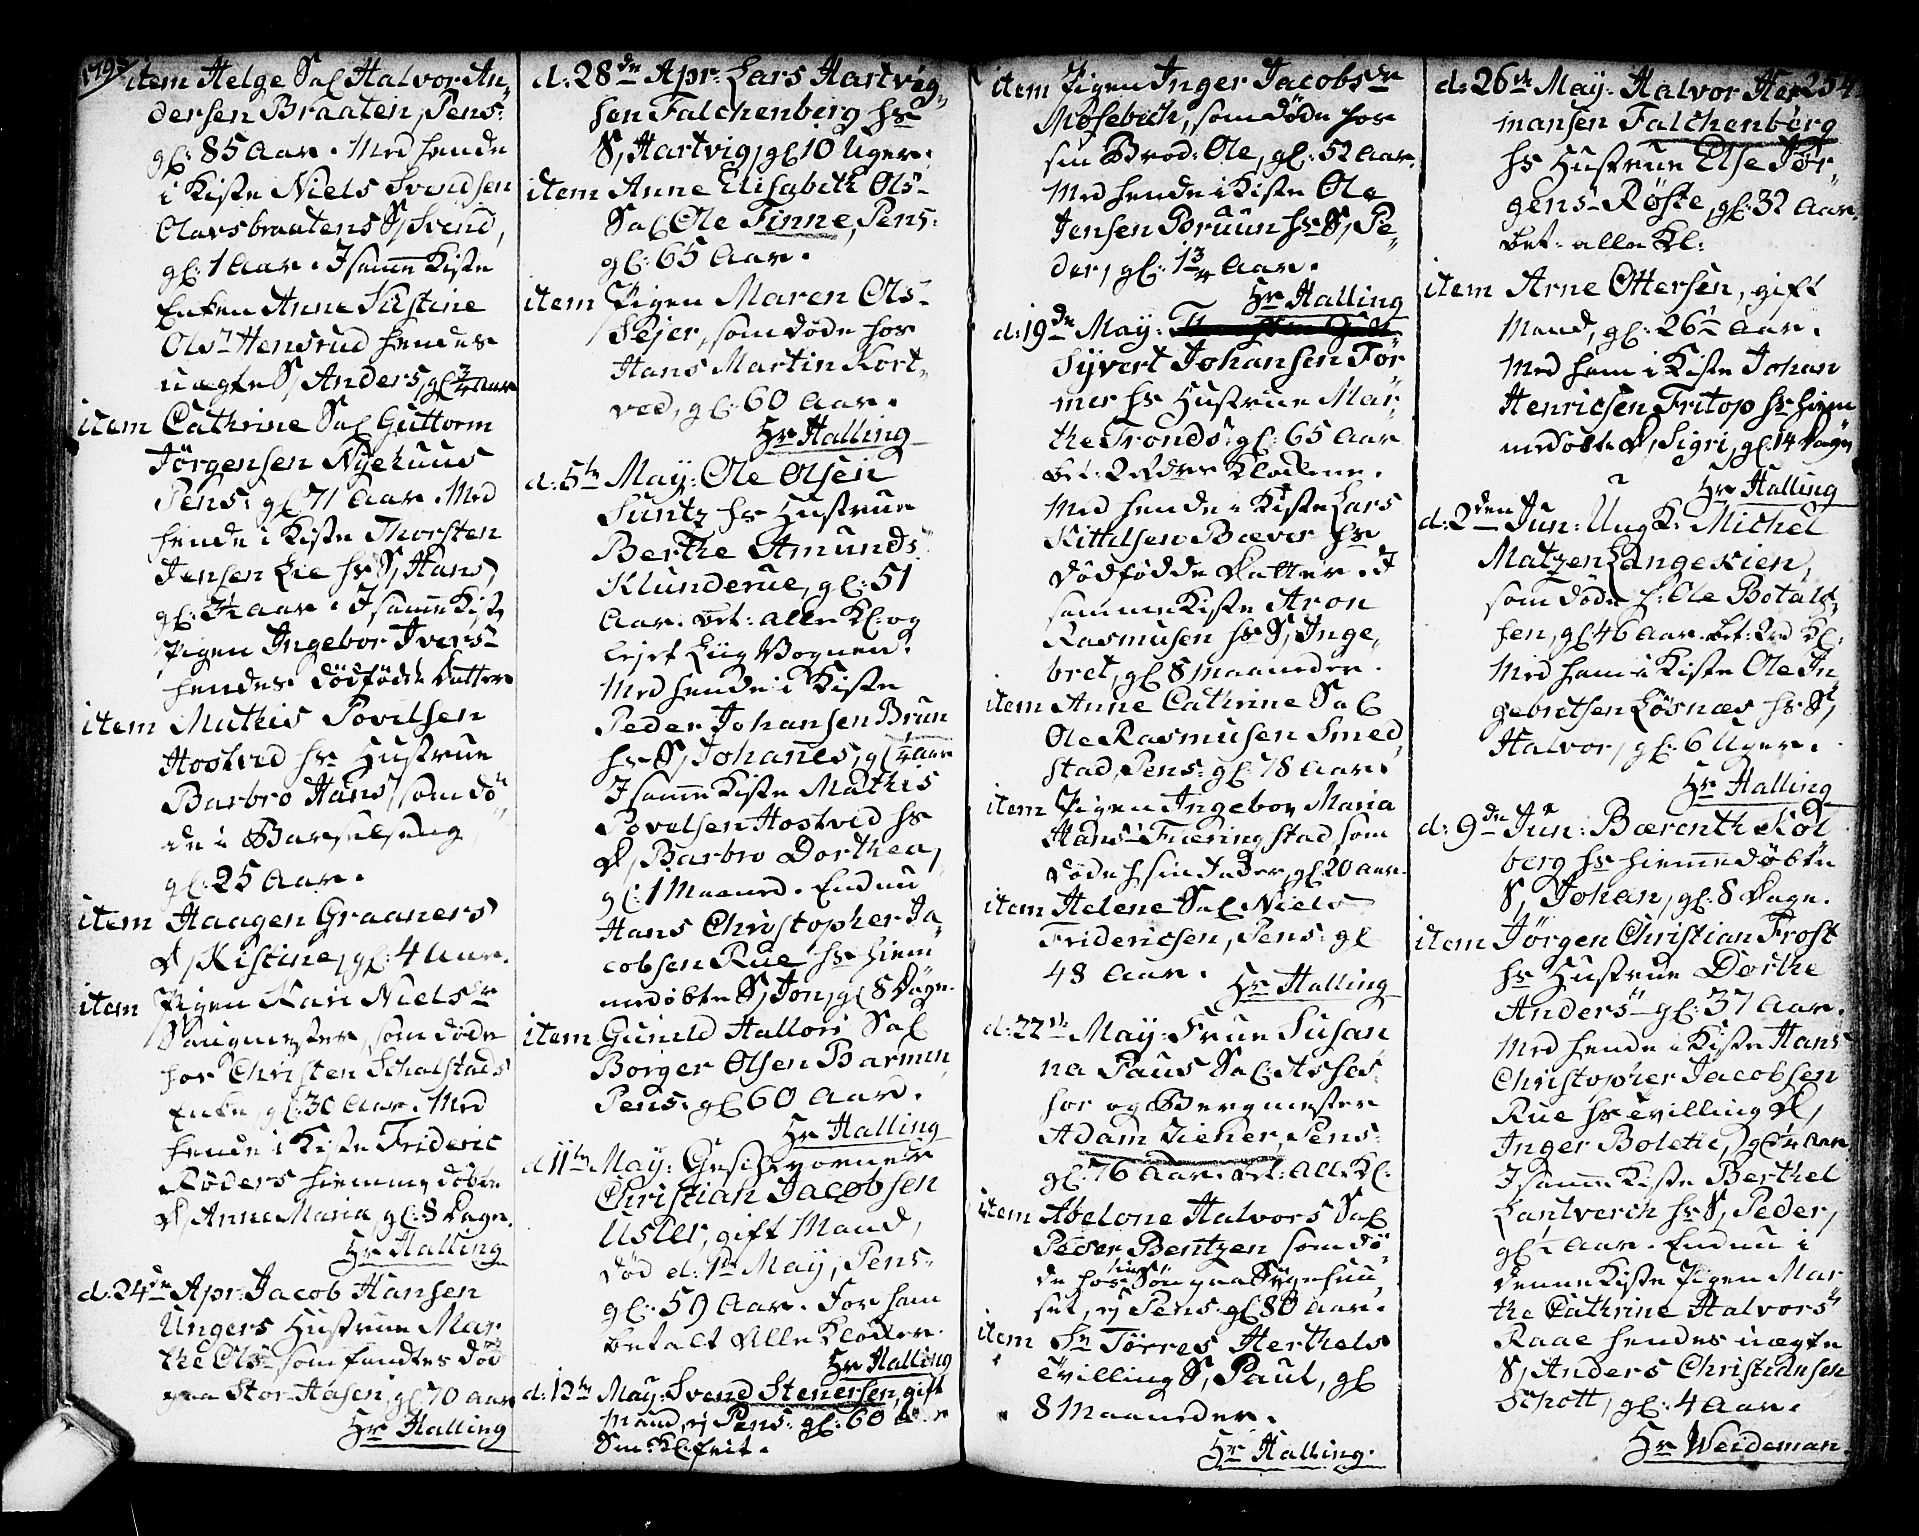 1793
item Helge Sal Halvor An-
dersen Braaten, Pens:
gl: 85 Aar. Med hende
i Kiste Niels Svendsen
Olavsbraatens S, Svend,
gl: 1 Aar. I samme Kiste
Enken Anne Kistine
Ols Hensrud hendes
uægte S, Anders, gl 3/4 Aar
item Cathrine Sal Guttorm
Jørgensen Nyehuus
Pens: gl 71 Aar. Med
hende i Kiste Thorsten
Jensen Lie hs S, Hans,
gl: 3½ Aar. I samme Kiste
Pigen Ingebor Ivers
hendes dödfödde Datter
item Mathis Povelsen
Hostvid hs Hustrue
Barbro Hans, som dö
de i Barselseng,
gl: 25 Aar.
item Haagen Graaners
D, Kistine, gl: 4 Aar.
item Pigen Kari Niels
som döde
hos Christen Schalstads
Enke, gl: 30 Aar. Med
hende i Kiste Frideric
Röders hiemmedöbte
D, Anne Maria, gl: 8 Dage.
Hr Halling
d: 24de Apr: Jacob Hansen
Ungers Hustrue Mar
the Ols som fandtes död
paa Stor-Aasen, gl: 70 Aar
Hr Halling
d: 28de Apr: Lars Hartvig-
sen Falchenberg hs
S, Hartvig, gl 10 Uger.
item Anne Elisabeth Ols
Sal Ole Finne, Pens:
gl: 65 Aar.
item Pigen Maren Ols
Sejer, som döde hos
Hans Martin Kort-
ved, gl: 60 Aar.
Hr Halling
d: 5te May: Ole Olsen
Suntz hs Hustrue
Berthe Amunds
Klunderue, gl: 51
Aar. bet: alle Kl: og
lejet Liig Vognen.
Med hende i Kiste
Peder Johansen Brun
hs S, Johanes, gl ¼ Aar
I samme Kiste Mathis
Povelsen Hostvid hs
D, Barbro Dorthea,
gl: 1 Maaned. Endnu
Hans Christopher Ja
cobsen Rue hs hiem
medöbte S, Jon, gl 8 Dage.
item Gunild Hallori Sal
Börger Olsen Barmen,
Pens: gl 60 Aar.
Hr Halling
d: 11te May: Geschvorner
Christian Jacobsen
Usler, gift Mand,
död d: 1te May, Pens:
gl: 59 Aar. For ham
betalt Alle Klokker.
Hr Halling
d: 12te May: Svend Stenersen, gift
Mand, ej Pens: gl: 60 Aar
Sm: Kl: frit.
item Pigen Inger Jacobs
Mosebech, som döde hos
sin Brod: Ole, gl: 52 Aar.
Med hende i Kiste Ole
Jensen Bruun hs S, Pe-
der, gl: 1¾ Aar.
Hr Halling
d: 19de May:
Syvert Johansen För
mer hs Hustrue Mar-
the Tronds: gl: 65 Aar
bet: 2 Klokkene.
Med hende i Kiste Lars
Kittelsen Bæver hs
dödfödde Datter. I
samme Kiste Aron
Rasmusen hs S, Inge-
bret, gl 8 Maaneder.
item Anne Cathrine Sal
Ole Rasmusen Smed
stad, Pens: gl: 78 Aar.
item Pigen Ingebor Maria
Hans Fuæringstad som
döde h sin Fader, gl 20 Aar.
item Helene Sal Niels
Friderichsen, Pens: gl
48 Aar.
Hr Halling
d: 22de May: Frue Susan
na Paus Sal: Asses-
sor og Bergmester
Adam Zieher, Pens:
gl: 76 Aar. bet: alle Kl:
item Abelone Halvors Sal
Peder Bentzen som dö
de hos sin Sön paa Sygehuu-
set, ej Pens: gl 80 Aar.
item Sr Törres Herthels
tvilling S, Paul, gl
8 Maaneder.
Hr Halling.
254
d: 26te May: Halvor Her-
mansen Falchenberg
hs Hustrue Else Jör-
gens Röste, gl: 32 Aar.
bet: alle Kl:
item Arne Ottersen, gift
Mand, gl: 26½ Aar.
Med ham i Kiste Johan
Henricsen Fritop hs hiem
medöbte D, Sigri, gl. 14 Dage
Hr Halling
d: 2den Jun: Ung K: Michel
Matzen Langekien,
som döde h: Ole Botalf-
sen, gl 46 Aar. bet: 2 Kl:
Med ham i Kiste Ole In
gebretsen Lösnæs hs S,
Halvor, gl: 6 Uger.
Hr Halling
d: 9de Jun: Bærenth Kol
berg hs hiemmedöbte
S, Johan, gl: 8 Dage.
item Jörgen Christian Frost
hs Hustrue Dorthe
Anders gl: 37 Aar.
Med hende i Kiste Hans
Christopher Jacobsen
Rue hs tvilling D,
Inger Bolette, gl ¼ Aar
I samme Kiste Berthel
Lantverch hs S, Peder,
gl ½ Aar. Endnu i
denne Kiste Pigen Mar
the Cathrine Halvors
Raae hendes uægte
S, Anders Christiansen
Schott, gl: 4 Aar.
Hr Weideman.